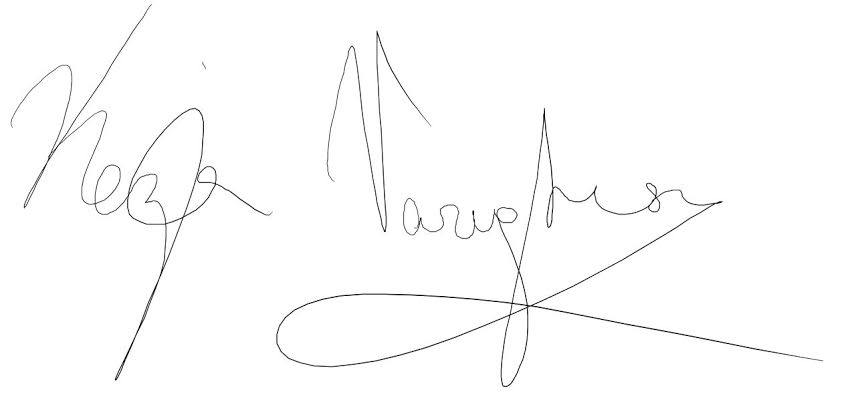 Kezia Varughese